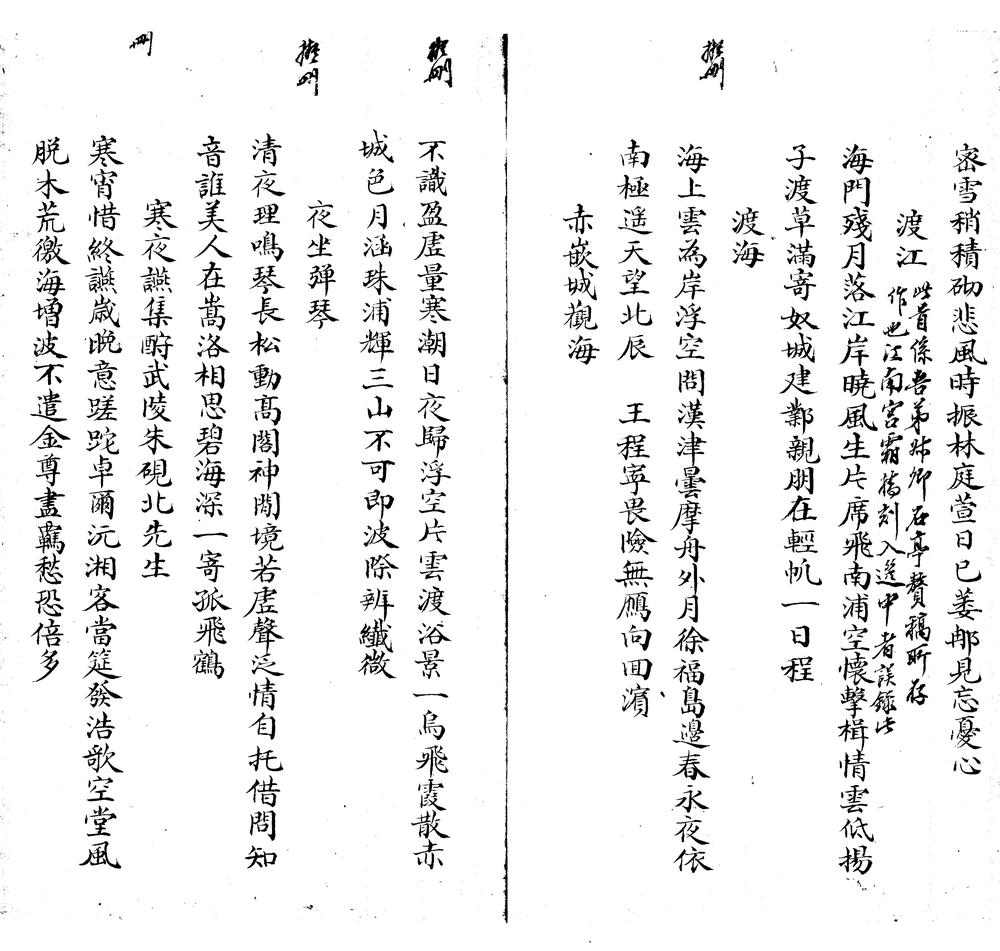 密雪稍積砌悲風時振林庭萱日已萎郍見忘憂心
渡江
此首係吾弟妹卿石亭贅稿所存
作也江南宫霜橋刻入選中者誤錄此
海門殘月落江岸曉風生片席飛南浦空懷擊楫情雲低揚
子渡草滿寄奴城建鄴親朋在輕帆一日程
渡海
擬刪
海上雲為岸浮空問漢津曇摩舟外月徐福島邊春永夜依
南極遥天望北辰 王程寧畏險無鴈向回濵
赤嵌城觀海
擬刪
不識盈虛量寒潮日夜歸浮空片雲渡浴景一烏飛霞散赤
城色月涵珠浦輝三山不可即波際辨纖微
夜坐弹琴
擬刪
清夜理鳴琴長松動髙閣神閒境若虛聲泛情自托借問知
音誰美人在嵩洛相思碧海深一寄孤飛鶴
寒夜讌集酧武陵朱硯北先生
刪
寒宵惜終讌歲晚意蹉跎卓爾沅湘客當筵發浩歌空堂風
脱木荒徼海增波不遣金尊盡羈愁恐倍多